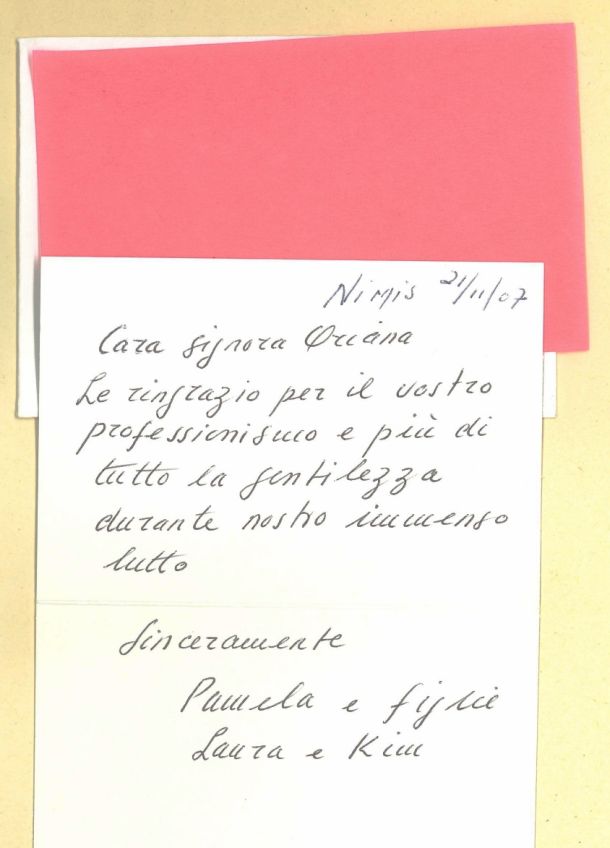 Nimis 21/11/07
Cara signora Oriana
Le ringrazio per il vostro
professionismo e più di
tutto la gentilezza
durante nostro immenso
lutto
Sinceramente
Pamela e figlie
Laura e Kim